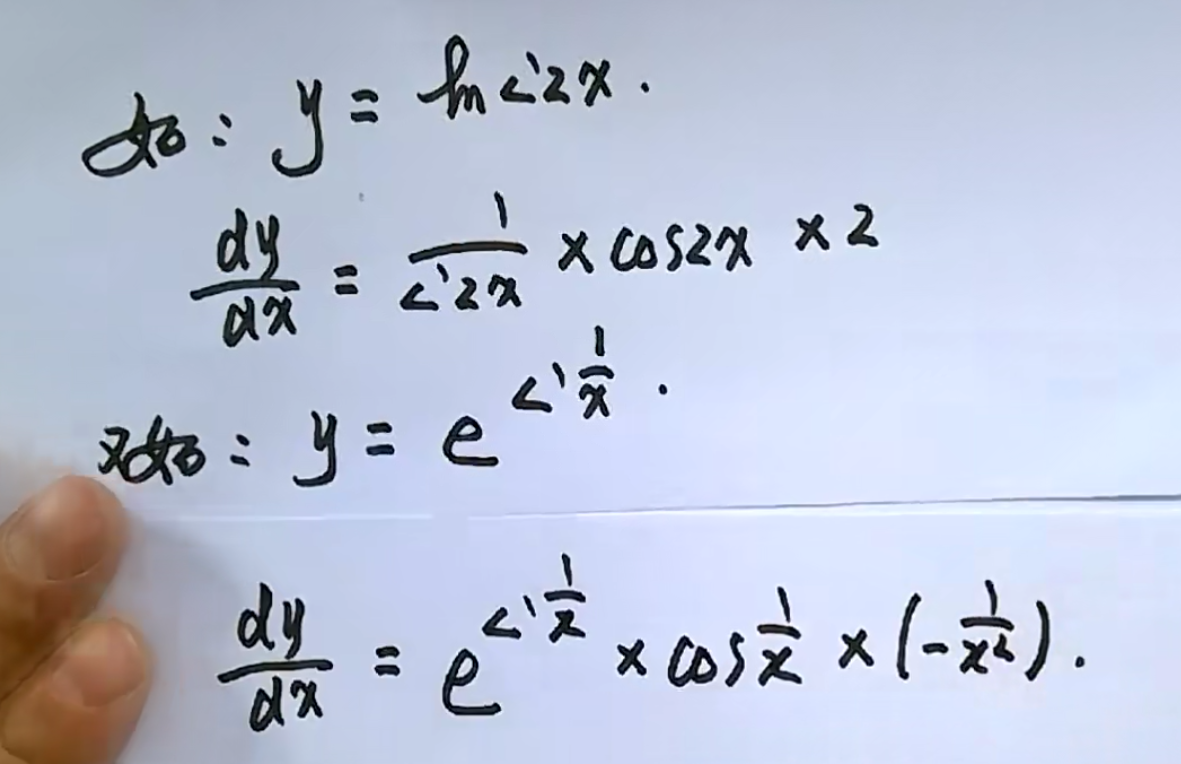 如：y = ln sin2x.
dy/dx = 1/sin2x × cos2x × 2
又如：y = e^(sin 1/x).
dy/dx = e^(sin 1/x) × cos 1/x × (-1/x²).